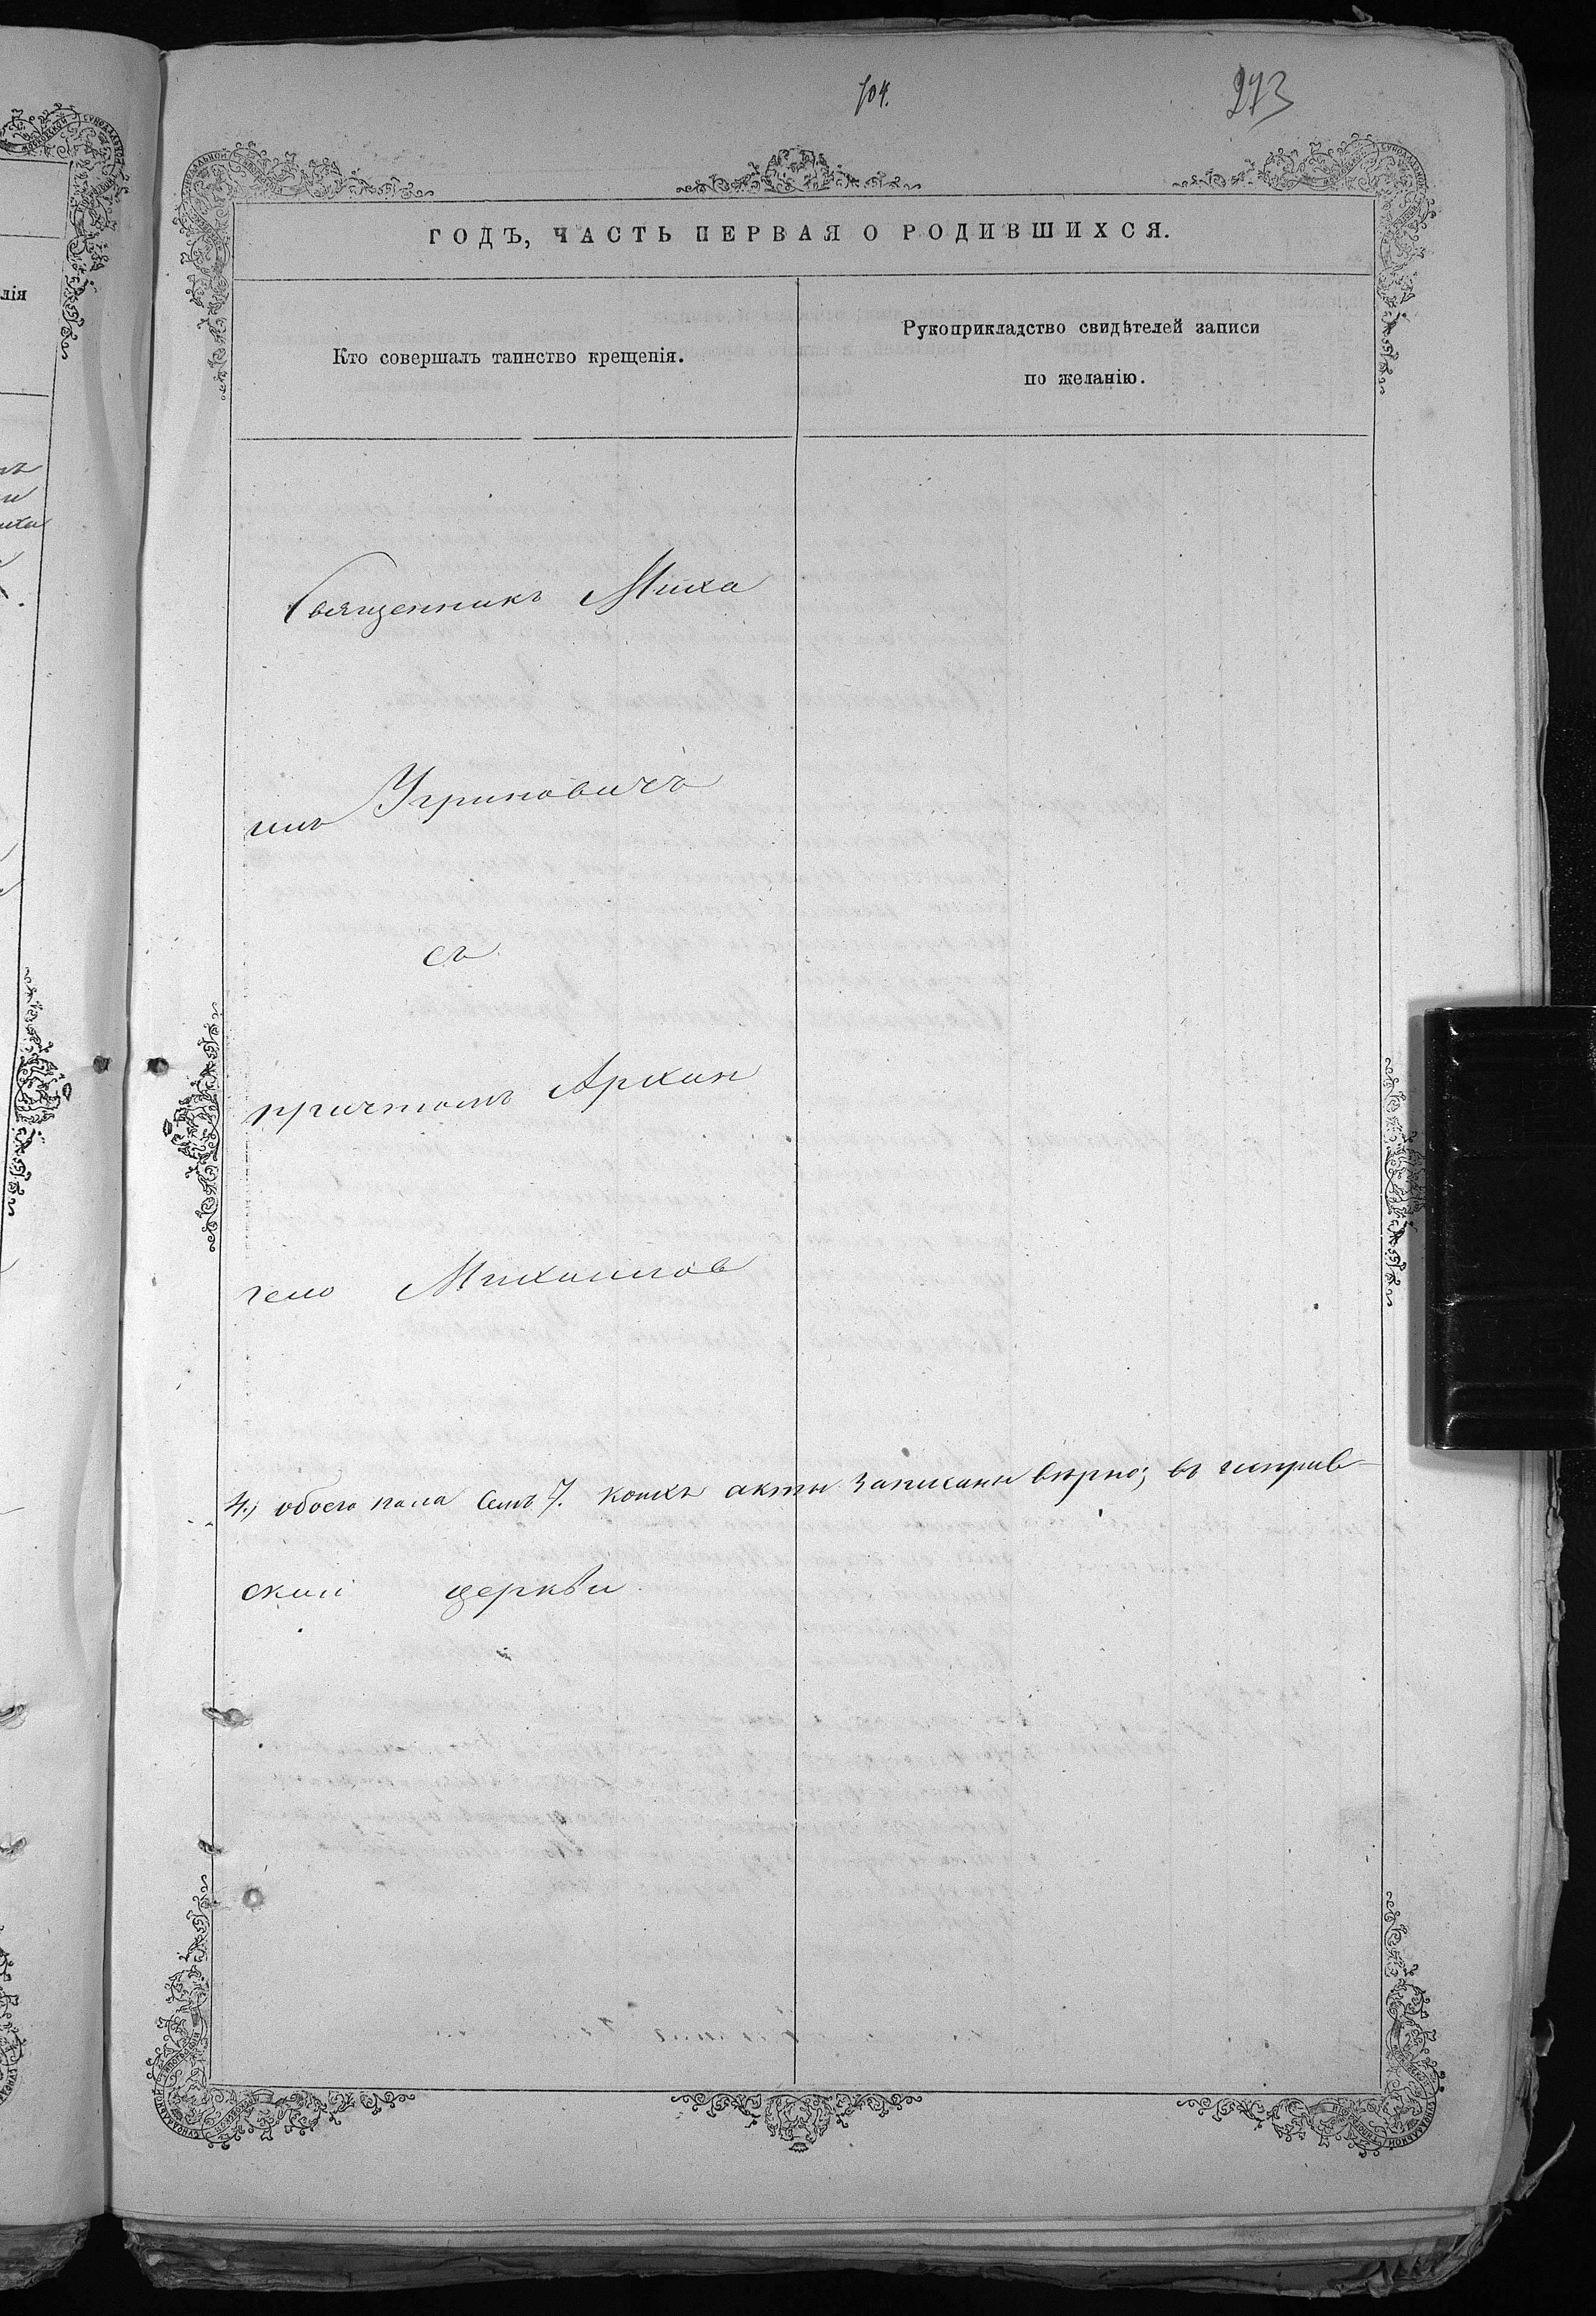 104.
273
ГОДЪ, ЧАСТЬ ПЕРВАЯ О РОДИВШИХСЯ.
Кто совершалъ таинство крещенія.
Рукоприкладство свидѣтелей записи
по желанію.
Священникъ Миха
илъ Угриновичъ
съ
причтомъ Архан
гело Михаилов
4.) обоего пола семь 7. коихъ акты записаны вѣрно; въ исправ-
ской церкви